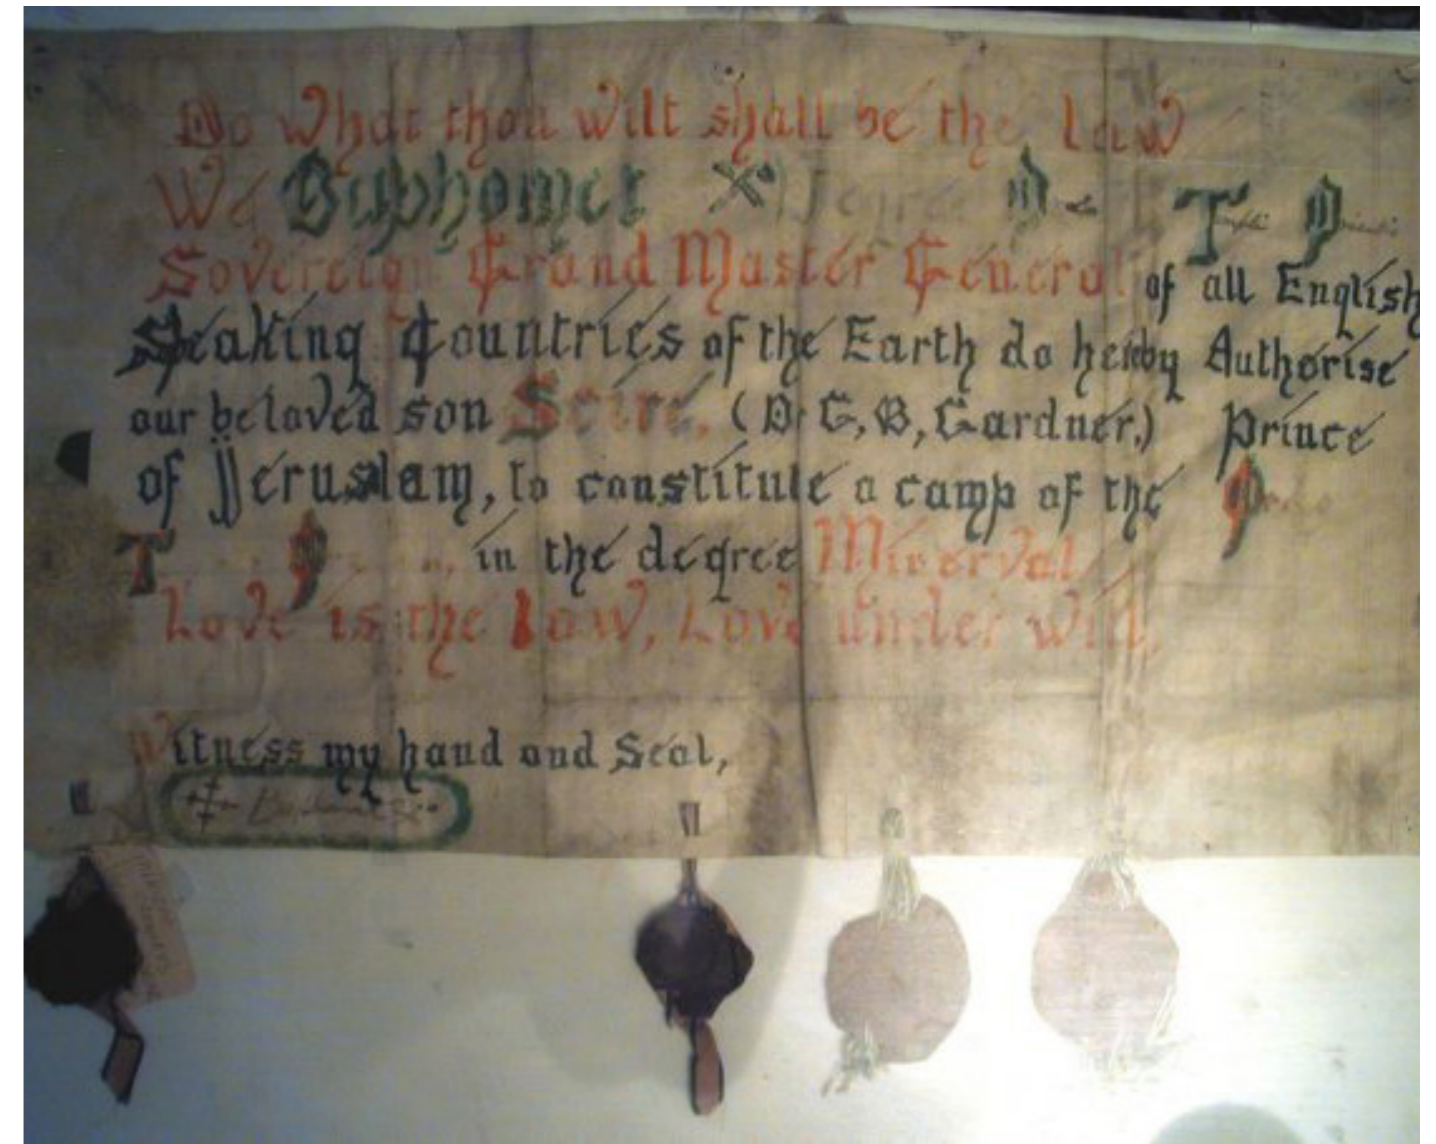 Do What thou wilt shall be the law
We Baphomet X° Degree O T O
Sovereign Grand Master General of all English
Speaking Countries of the Earth do hereby Authorise
our beloved son Scire, (Dr G,B,Gardner,) Prince
of Jeruslam, to constitute a camp of the Ordo
T O in the degree Minerval.
Love is the law, Love under will,
Witness my hand and Seal,
Baphomet X°